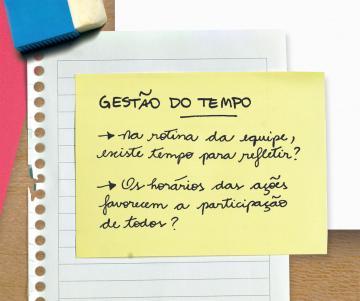 GESTÃO DO TEMPO
→ Na rotina da equipe,
existe tempo para refletir?
→ Os horários das ações
favorecem a participação
de todos?